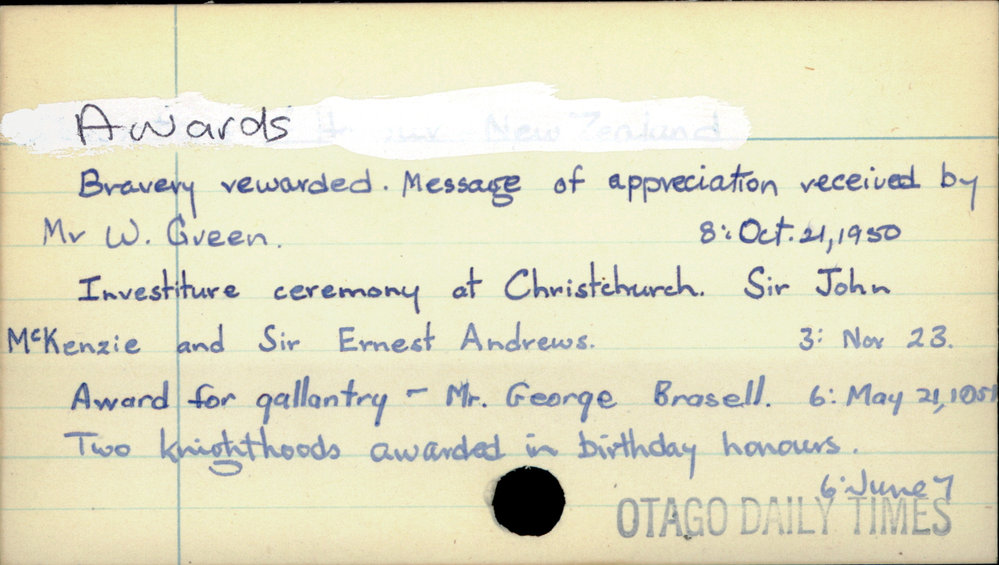 Awards
New Zealand
Bravery rewarded. Message of appreciation received by
Mr W. Green. 8: Oct. 21, 1950
Investiture ceremony at Christchurch. Sir John
McKenzie and Sir Ernest Andrews. 3: Nov 23.
Award for gallantry - Mr. George Brasell. 6: May 21, 1951
Two knighthoods awarded in birthday honours.
6: June 7
OTAGO DAILY TIMES